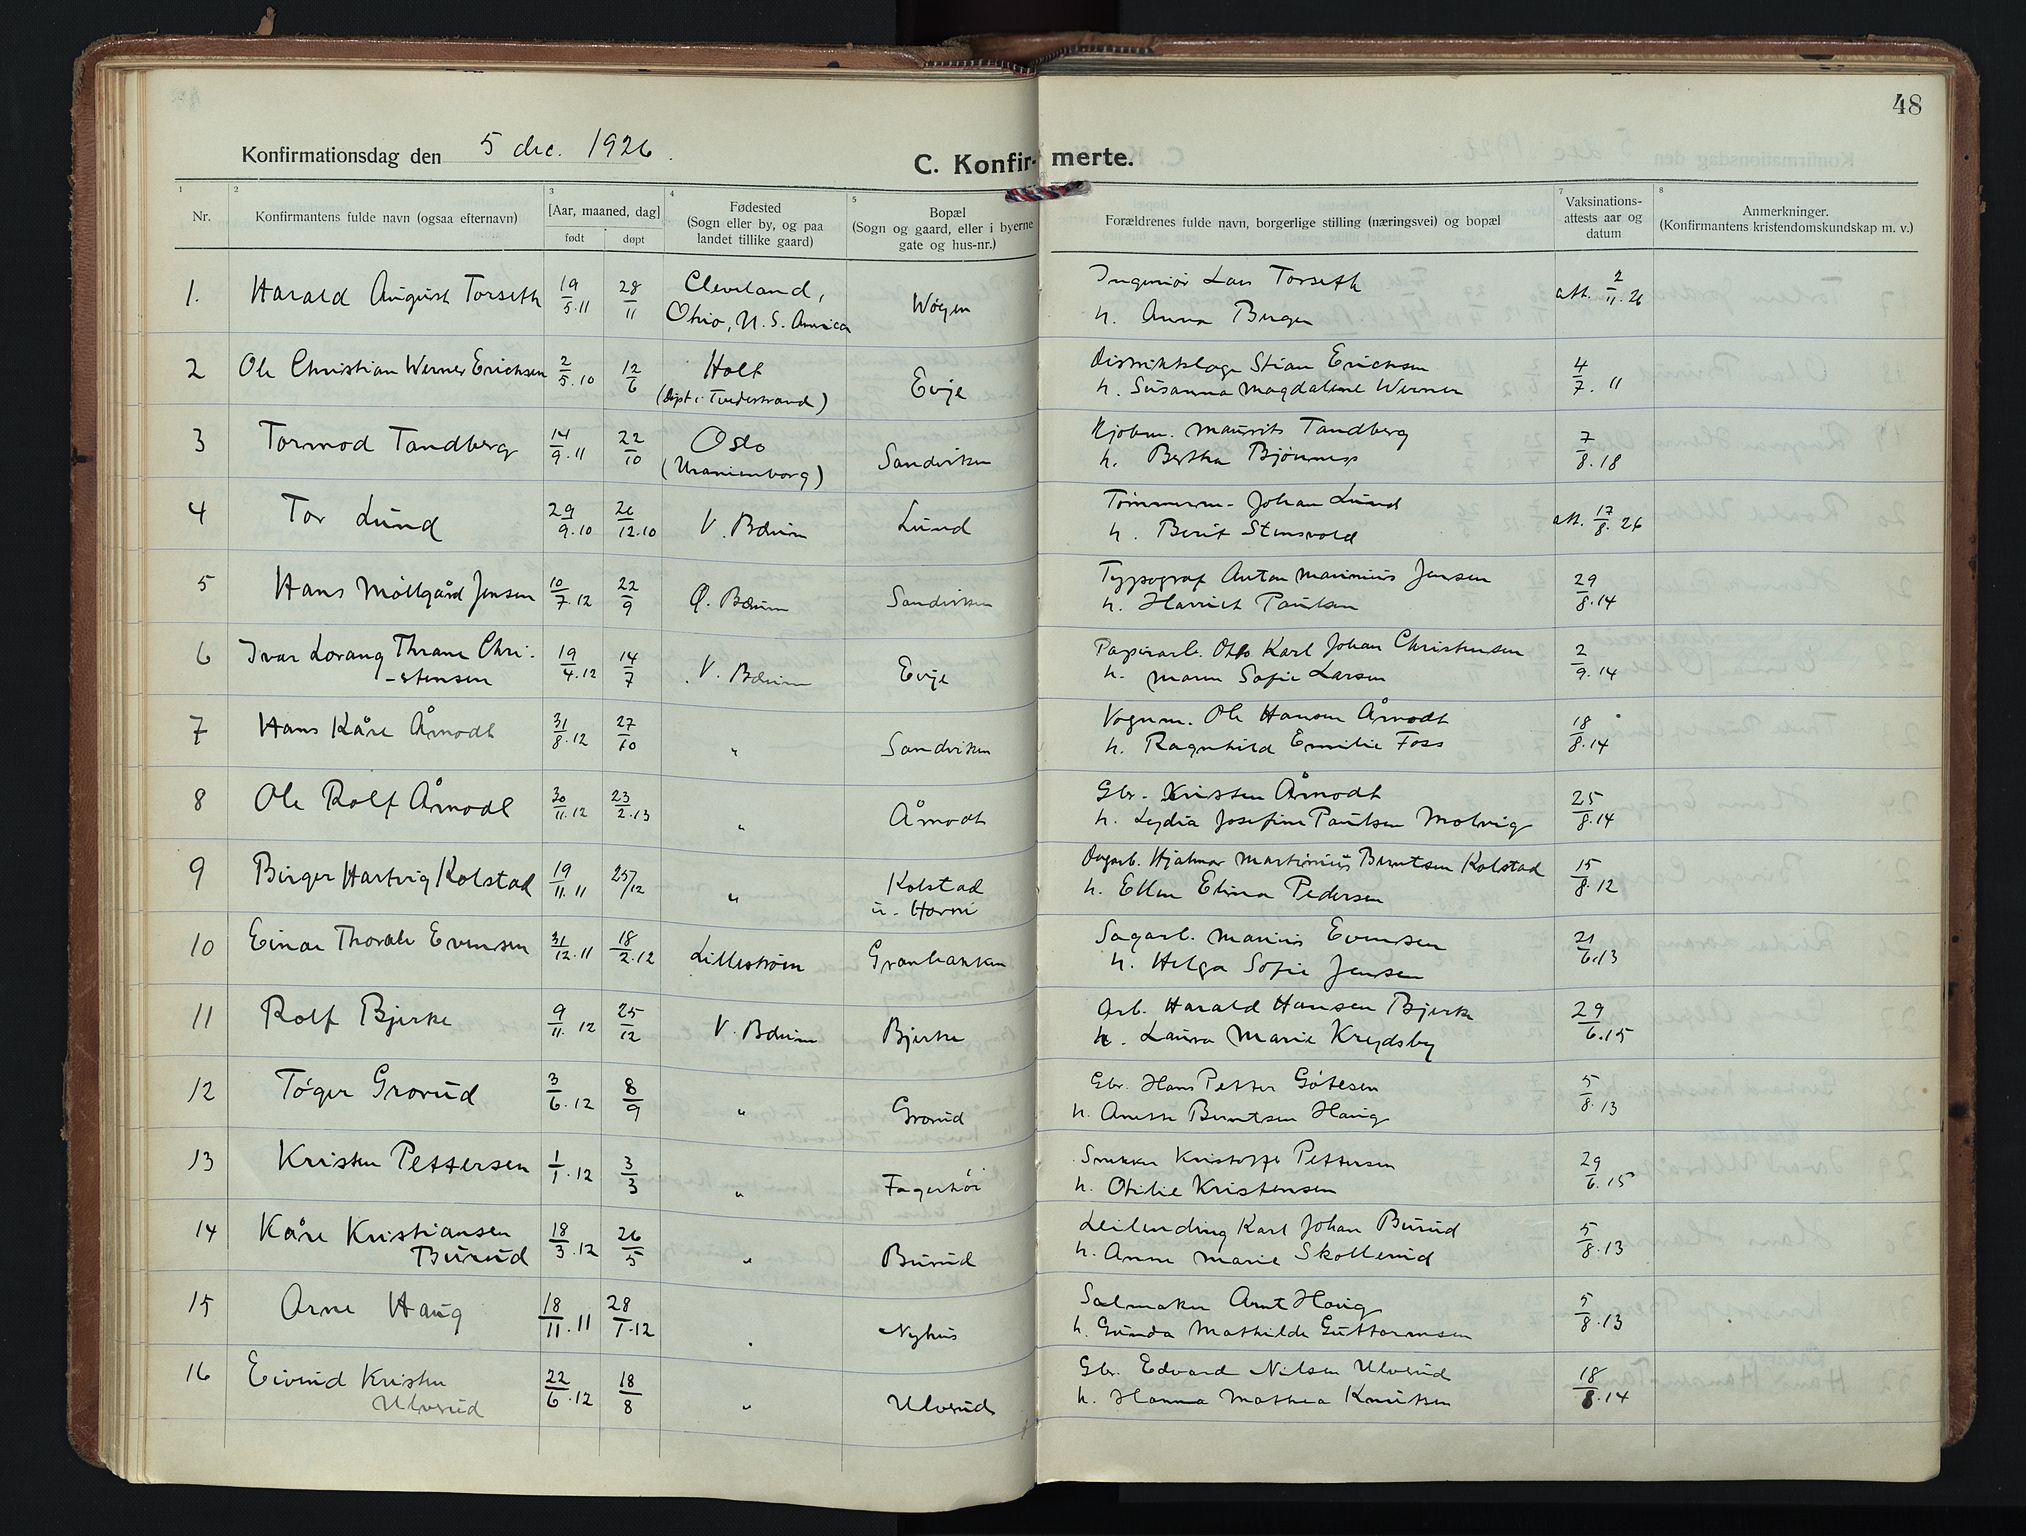 48
Konfirmationsdag den 5 dec. 1926.
C. Konfir- merte.
1 2 3 4 5 7 8
Nr.
Konfirmantens fulde navn (ogsaa efternavn)
[Aar, maaned, dag]
født døpt
Fødested
(Sogn eller by, og paa
landet tillike gaard)
Bopæl
(Sogn og gaard, eller i byerne
gate og hus-nr.)
Forældrenes fulde navn, borgerlige stilling (næringsvei) og bopæl
Vaksinations-
attests aar og
datum
Anmerkninger.
(Konfirmantens kristendomskundskap m. v.)
1. Harald August Torseth 19/5.11 28/11 Cleveland, Ohio, U.S. America Ingeniør Lars Torseth
h. Anna Berger att. 2/11.26
2 Ole Christian Werner Erichsen 2/5.10 12/6 Holt (døpt i Tvedestrand) Evje Distriktslæge Stian Erichsen
h. Susanna Magdalene Werner 4/7.11
3 Tormod Tandberg 14/9.11 22/10 Oslo (Uranienborg) Sandviken Kjøbm. Maurits Tandberg
h. Bertha 7/8.18
4 Tor Lund 29/9.10 26/12.10 V. Bærum Lund Tømmerm. Johan Lund
h. Berit Stensvold att. 17/8.26
5 Hans Møllgård Jensen 10/7.12 22/9 Ø. Bærum Sandviken Typograf Anton Marinius Jensen
h. Harriet Paulsen 29/8.14
6 Ivar Lorang Thrane Chri-
-stensen 19/4.12 14/7 V. Bærum Evje Papirarb. Otto Karl Johan Christensen
h. Maren Sofie Larsen 2/9.14
7 Hans Kåre Åmodt 31/8.12 27/10 " Sandviken Vognm. Ole Hansen Åmodt
h. Ragnhild Emilie Foss 18/8.14
8 Ole Rolf Åmodt 30/11.12 23/2.13 " Åmodt Gbr. Kristen Åmodt
h. Lydia Josefine Paulsen Molvig 25/8.14
9 Birger Hartvig Kolstad 19/11.11 25/12 " Kolstad
u. Horni Dagarb. Hjalmar Martinius Berntsen Kolstad
h. Ellen Elina Pedersen 15/8.12
10 Einar Thorale Evensen 31/12.11 18/2.12 Lillestrøm Granbakken Sagarb. Marius Evensen
h. Helga Sofie Jensen 21/6.13
11 Rolf Bjerke 9/11.12 25/12 V. Bærum Bjerke Arb. Harald Hansen Bjerke
h. Laura Marie Krydsby 29/6.15
12 Tøger Grorud 3/6.12 8/9 " Grorud Gbr. Hans Petter Gulbrandsen
h. Anette Berntsen Haug 5/8.13
13 Kristen Pettersen 1/1.12 3/3 " Fagerhøi Snekker Kristoffer Pettersen
h. Otilie Kristensen 29/6.15
14 Kåre Kristiansen
Burud 18/3.12 26/5 " Burud Leilending Karl Johan Burud
h. Anne Marie Skollerud 5/8.13
15 Arne Haug 18/11.11 28/1.12 " Nyhus Salmaker Arnt Haug
h. Gunda Mathilde Guttormsen 5/8.13
16 Eivind Kristen
Ulverud 22/6.12 18/8 " Ulverud Gbr. Edvard Nilsen Ulverud
h. Hanna Mathea Knutsen 18/8.14